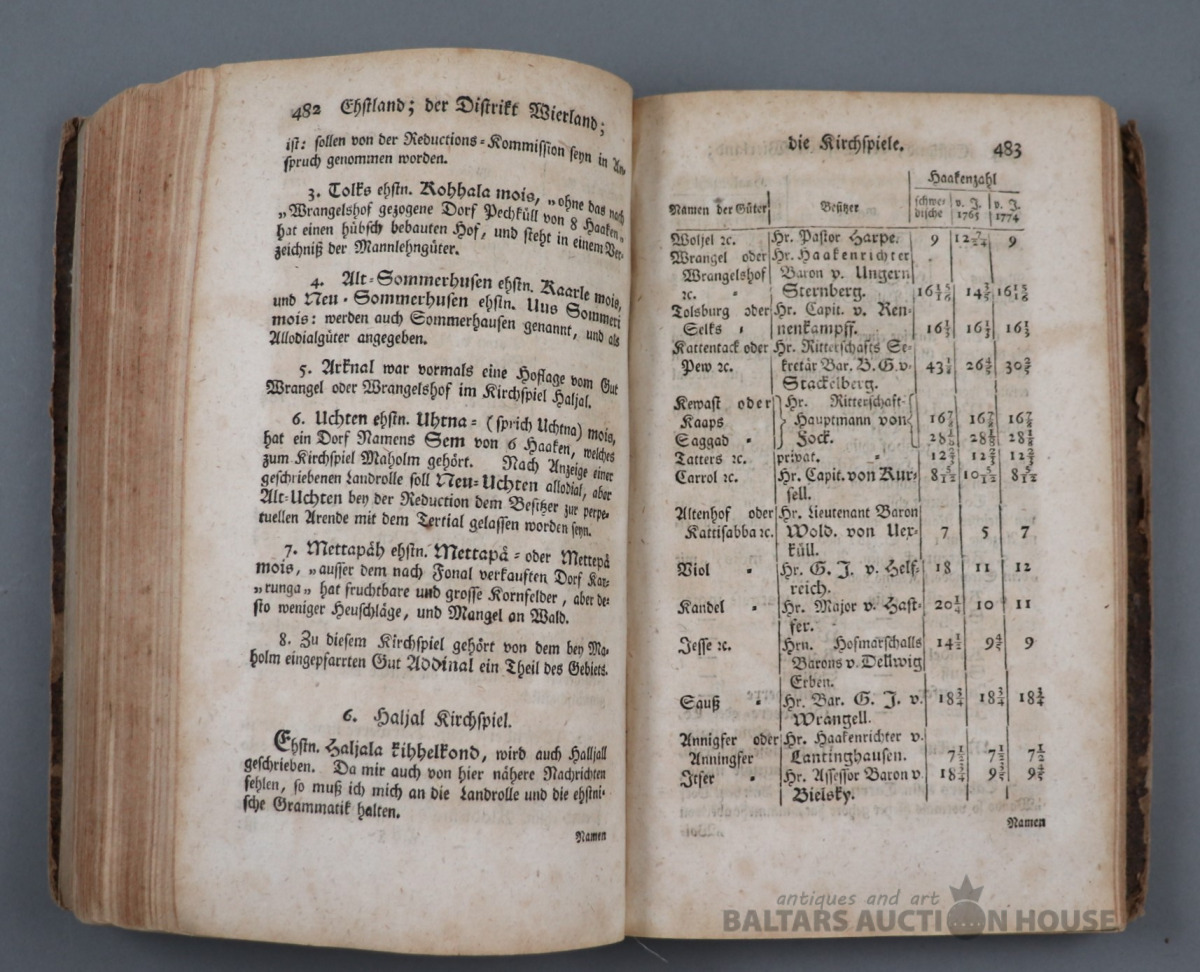 482 Ehstland; der Distrikt Wierland;
ist: sollen von der Reductions-Kommission seyn in An-
spruch genommen worden.
3. Tolks ehstn. Rohhala mois, „ohne das nach
„Wrangelshof gezogene Dorf Pechküll von 8 Haaken„
hat einen hübsch bebauten Hof, und steht in einem Ver-
zeichniß der Mannlehngüter.
4. Alt-Sommerhusen ehstn. Kaarle mois,
und Neu-Sommerhusen ehstn. Uus Sommeri
mois: werden auch Sommerhausen genannt, und als
Allodialgüter angegeben.
5. Arknal war vormals eine Hoflage vom Gut
Wrangel oder Wrangelshof im Kirchspiel Haljal.
6. Uchten ehstn. Uhtna- (sprich Uchtna) mois,
hat ein Dorf Namens Sem von 6 Haaken, welches
zum Kirchspiel Maholm gehört. Nach Anzeige einer
geschriebenen Landrolle soll Neu-Uchten allodial, aber
Alt-Uchten bey der Reduction dem Besitzer zur perpe-
tuellen Arende mit dem Tertial gelassen worden seyn.
7. Mettapäh ehstn. Mettapä- oder Mettepä
mois, „ausser dem nach Fonal verkauften Dorf Kar-
„runga„ hat fruchtbare und grosse Kornfelder, aber de-
sto weniger Heuschläge, und Mangel an Wald.
8. Zu diesem Kirchspiel gehört von dem bey Ma-
holm eingepfarrten Gut Addinal ein Theil des Gebiets.
6. Haljal Kirchspiel.
Ehstn. Haljala kihhelkond, wird auch Halljall
geschrieben. Da mir auch von hier nähere Nachrichten
fehlen, so muß ich mich an die Landrolle und die ehstni-
sche Grammatik halten.
Namen
die Kirchspiele. 483
Haakenzahl
Namen der Güter Besitzer schwe- v. J. v. J.
dische 1765 1774
Woljel ꝛc. Hr. Pastor Harpe. 9 12 7/24 9
Wrangel oder Hr. Haakenrichter
Wrangelshof Baron v. Ungern
ꝛc. - Sternberg. 16 15/16 14 3/5 16 15/16
Tolsburg oder Hr. Capit. v. Ren-
Selks - nenkampff. 16 1/3 16 1/3 16 1/3
Kattentack oder Hr. Ritterschafts Se-
Pew ꝛc. kretär Bar. B. G. v. 43 1/8 26 4/5 30 2/5
Stackelberg.
Kewast oder Hr. Ritterschaft-
Kaaps Hauptmann von 16 7/8 16 7/8 16 7/8
Saggad - Fock. 28 1/8 28 1/8 28 1/8
Tatters ꝛc. privat. - 12 2/3 12 2/3 12 2/3
Carrol ꝛc. Hr. Capit. von Kur- 8 5/12 10 5/12 8 5/12
sell.
Altenhof oder Hr. Lieutenant Baron
Kattisabba ꝛc. Wold. von Uex- 7 5 7
küll.
Viol - Hr. G. J. v. Helf- 18 11 12
reich.
Kandel - Hr. Major v. Hast- 20 1/4 10 11
fer.
Jesse ꝛc. Hrn. Hofmarschalls 14 1/2 9 4/5 9
Barons v. Dellwig
Erben.
Sauß - Hr. Bar. G. J. v. 18 3/4 18 3/4 18 3/4
Wrangell.
Annigfer oder Hr. Haakenrichter v.
Anningfer Lantinghausen. 7 1/2 7 1/2 7 1/2
Itfer - Hr. Assessor Baron v. 18 3/4 9 3/5
Bielsky.
Namen
antiques and art
BALTARS AUCTION HOUSE